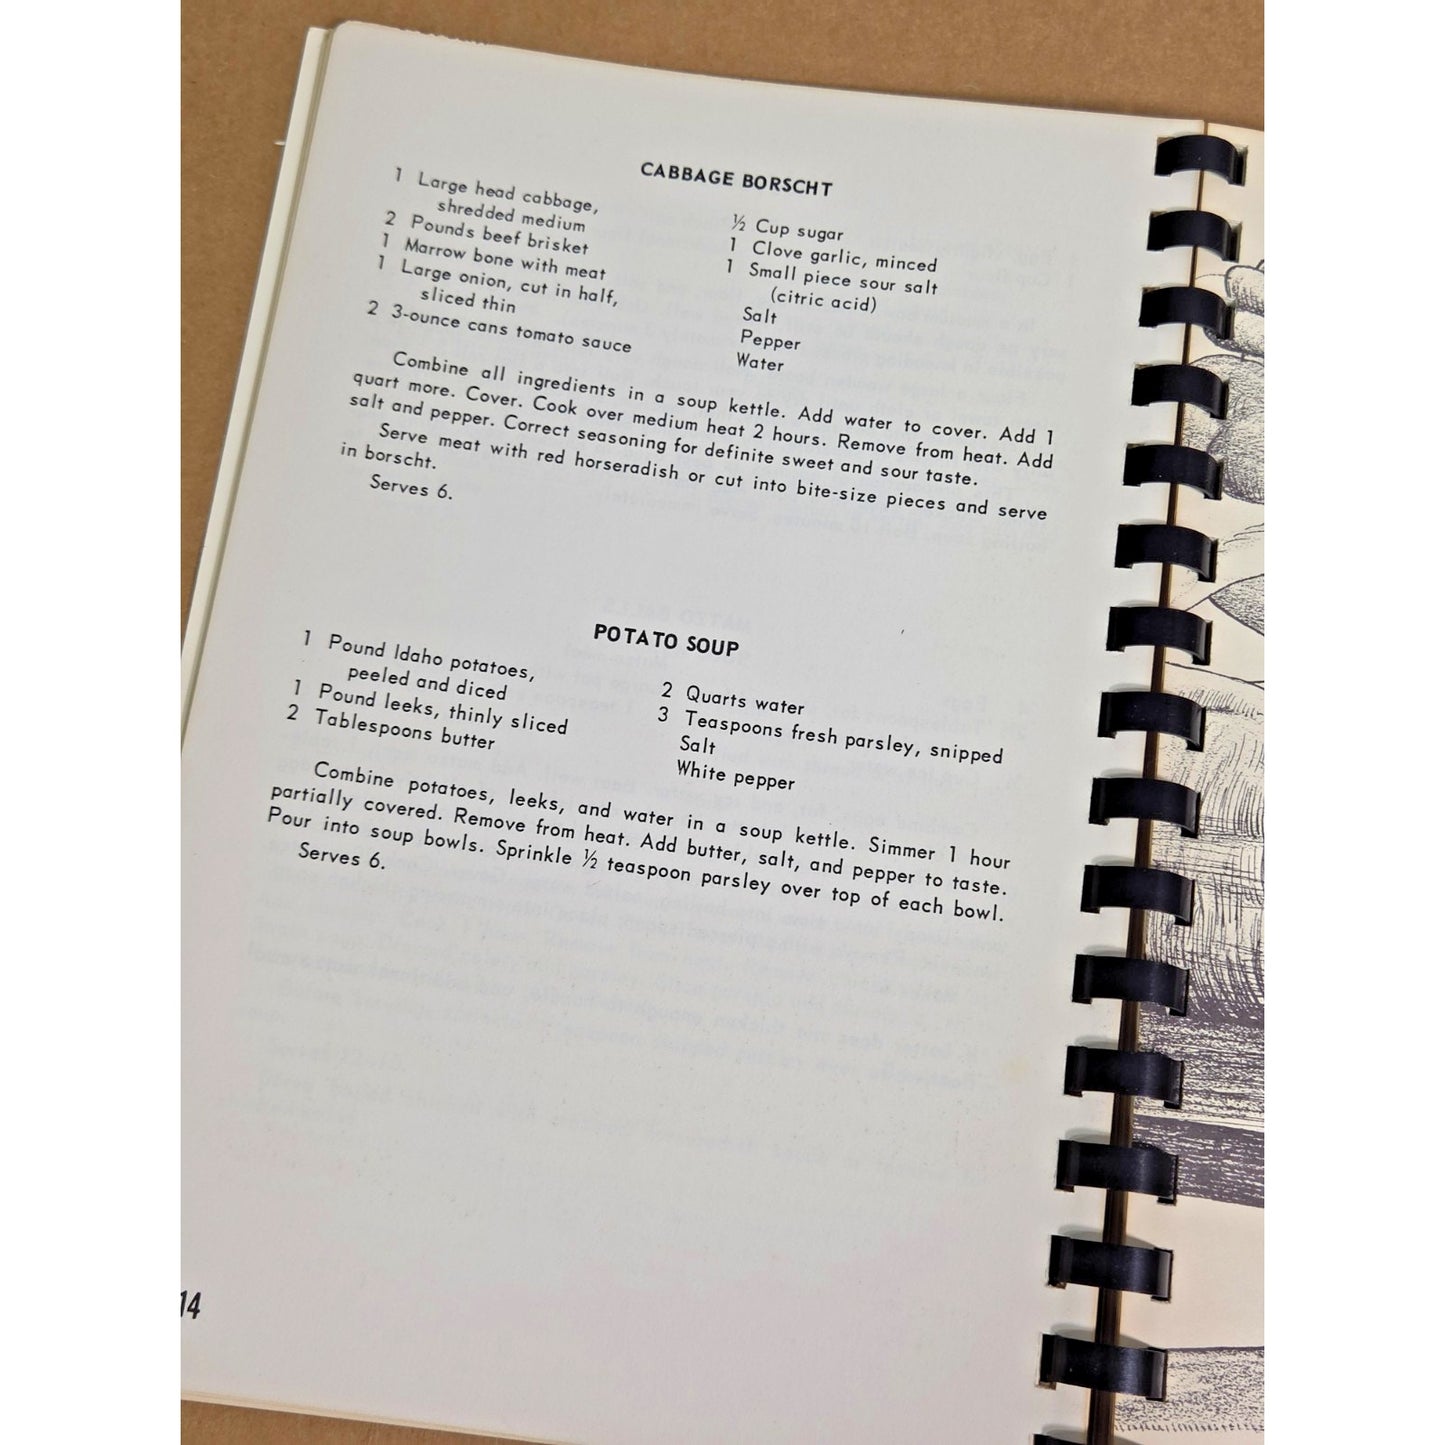 CABBAGE BORSCHT
1 Large head cabbage,
shredded medium
2 Pounds beef brisket
1 Marrow bone with meat
1 Large onion, cut in half,
sliced thin
2 3-ounce cans tomato sauce
½ Cup sugar
1 Clove garlic, minced
1 Small piece sour salt
(citric acid)
Salt
Pepper
Water
Combine all ingredients in a soup kettle. Add water to cover. Add 1
quart more. Cover. Cook over medium heat 2 hours. Remove from heat. Add
salt and pepper. Correct seasoning for definite sweet and sour taste.
Serve meat with red horseradish or cut into bite-size pieces and serve
in borscht.
Serves 6.
POTATO SOUP
1 Pound Idaho potatoes,
peeled and diced
1 Pound leeks, thinly sliced
2 Tablespoons butter
2 Quarts water
3 Teaspoons fresh parsley, snipped
Salt
White pepper
Combine potatoes, leeks, and water in a soup kettle. Simmer 1 hour
partially covered. Remove from heat. Add butter, salt, and pepper to taste.
Pour into soup bowls. Sprinkle ½ teaspoon parsley over top of each bowl.
Serves 6.
14